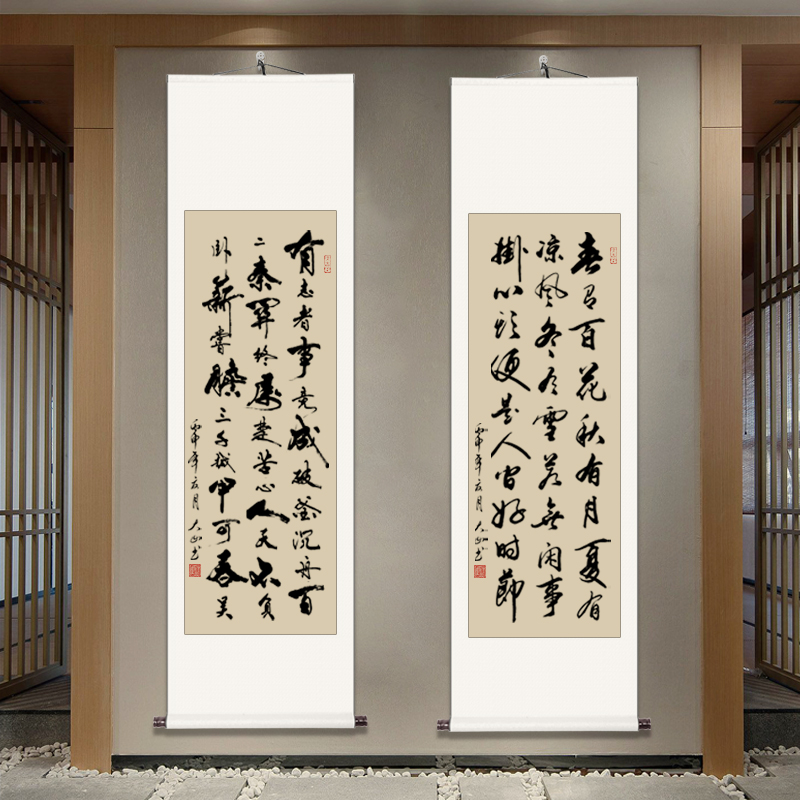 春有百花秋有月夏有
凉风冬有雪若無闲事
掛心头便是人间好时節
丙申年 月 大山书
有志者事竟成破釜沉舟百
二秦関终属楚苦心人天不負
卧薪嘗膽三千越甲可吞吴
丙申年 月 大山书